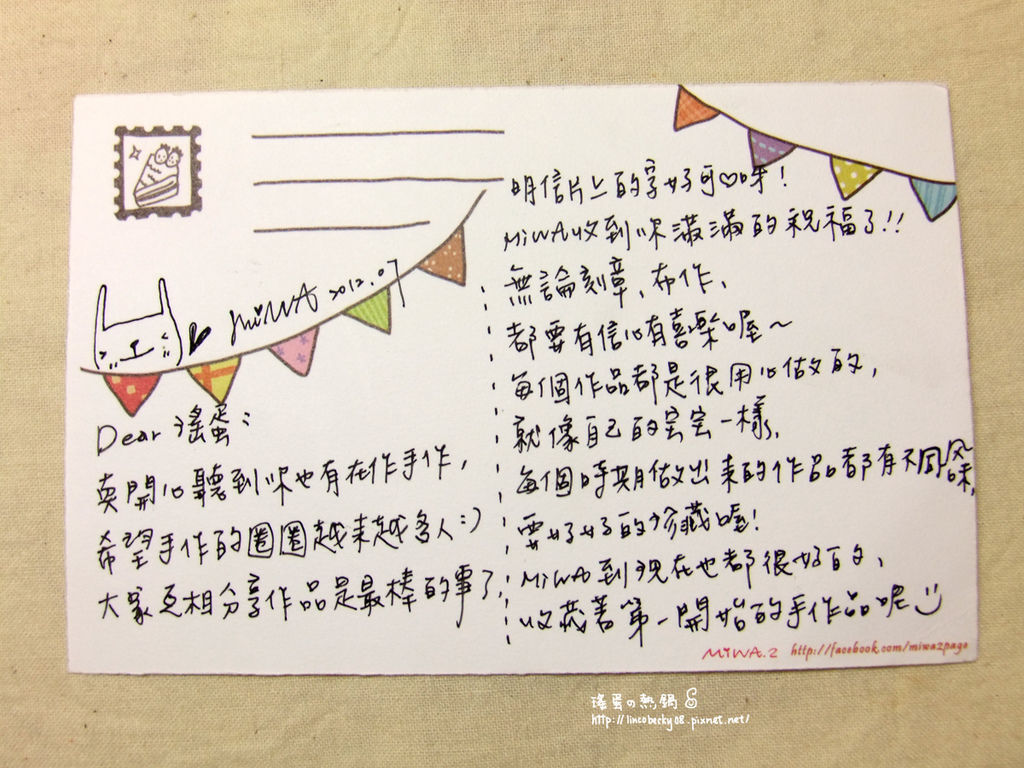 MiWA 2012.07
Dear 瑤蛋：
真開心聽到你也有在作手作，
希望手作的圈圈越來越多人:)
大家互相分享作品是最棒的事了，
明信片上的字好可♡呀！
MiWA收到你滿滿的祝福了!!
無論刻章、布作、
都要有信心有喜樂喔～
每個作品都是很用心做的，
就像自己的寶寶一樣，
每個時期做出來的作品都有不同風味，
要好好的珍藏喔！
MiWA到現在也都很好的、
收藏著第一開始的手作品呢
MiWA.2 http://facebook.com/miwa2page
瑤蛋の熱鍋
http://lincoberky08.pixnet.net/